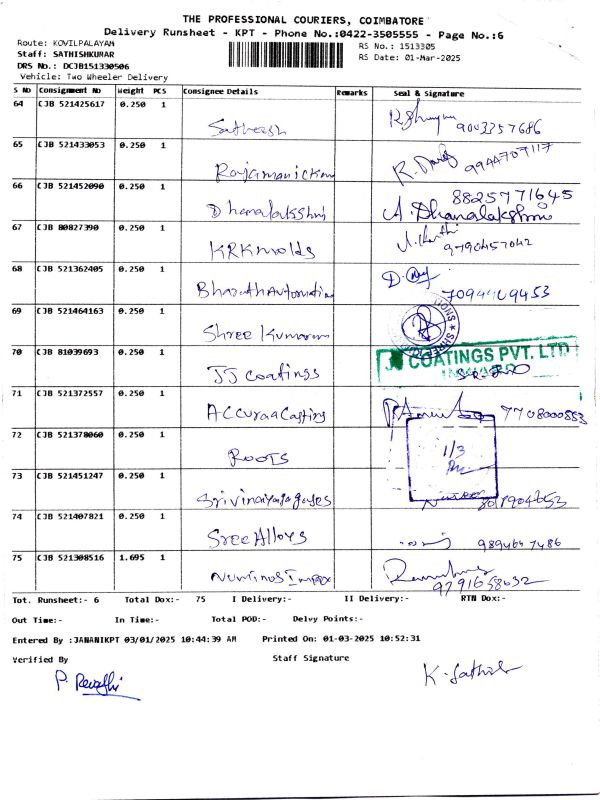 THE PROFESSIONAL COURIERS, COIMBATORE
Delivery Runsheet - KPT - Phone No.:0422-3505555 - Page No.:6
Route: KOVILPALAYAM
RS No.: 1513305
Staff: SATHISHKUMAR
RS Date: 01-Mar-2025
DRS No.: DCJB151330506
Vehicle: Two Wheeler Delivery
S No Consignment No Weight PCS Consignee Details Remarks Seal & Signature
64 CJB 521425617 0.250 1
Satheesh 9003357686
65 CJB 521433053 0.250 1
Rajamanickam 9944707117
66 CJB 521452090 0.250 1 8825771645
Dhanalakshmi A. Dhanalakshmi
67 CJB 80827390 0.250 1
KRK molds 9790457042
68 CJB 521362405 0.250 1
Bharath Automation 7094409453
69 CJB 521464163 0.250 1
Shree Kumaran
70 CJB 81039693 0.250 1 JJ COATINGS PVT. LTD
JJ coatings
71 CJB 521372557 0.250 1
Accuraa Casting 7708000853
72 CJB 521378060 0.250 1 1/3
Roots
73 CJB 521451247 0.250 1
Srivinayaga gases
74 CJB 521407821 0.250 1
Sree Alloys 9894647486
75 CJB 521308516 1.695 1
Numinos Impex 9791658632
Tot. Runsheet:- 6 Total Dox:- 75 I Delivery:- II Delivery:- RTN Dox:-
Out Time:- In Time:- Total POD:- Delvy Points:-
Entered By :JANANIKPT 03/01/2025 10:44:39 AM Printed On: 01-03-2025 10:52:31
Verified By Staff Signature
P. Revathi K. Sathish